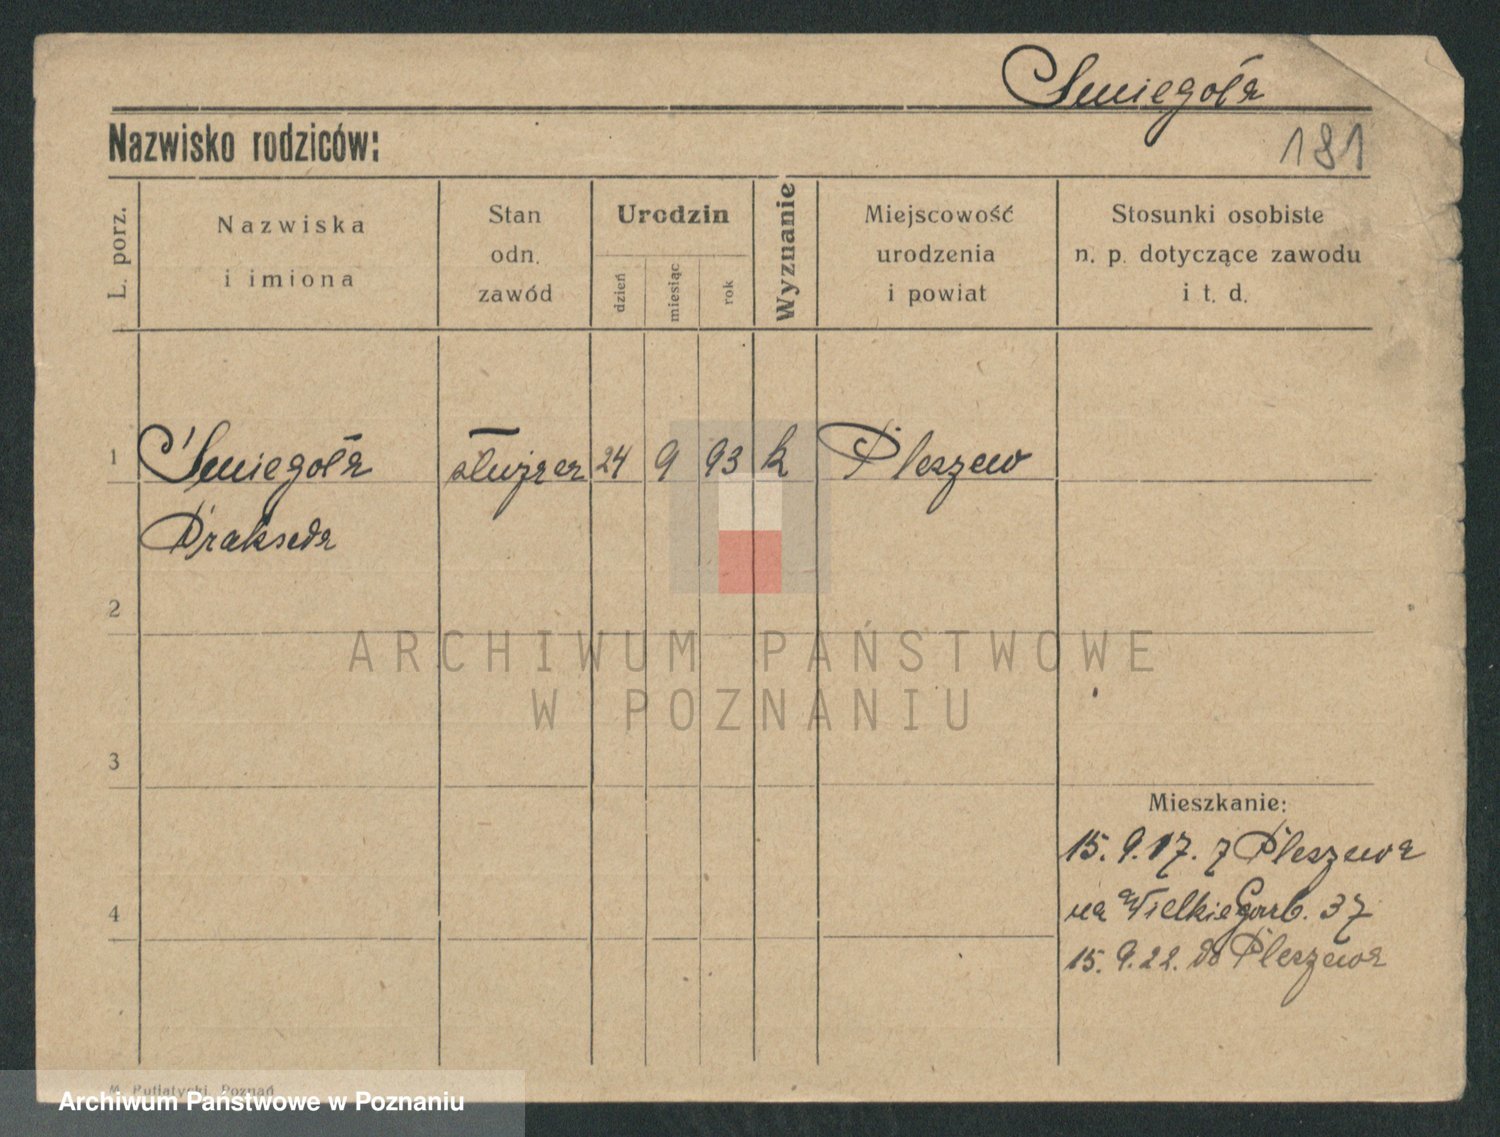 Smiegoła
Nazwisko rodziców:
181
L. porz.
Nazwiska
i imiona
Stan
odn.
zawód
Urodzin
dzień
miesiąc
rok
Wyznanie
Miejscowość
urodzenia
i powiat
Stosunki osobiste
n. p. dotyczące zawodu
i t. d.
1 Śmiegoła służąca 24 9 93 k Pleszew
Prakseda
2
ARCHIWUM PAŃSTWOWE
W POZNANIU
3
Mieszkanie:
15. 9. 17. z Pleszewa
4
na Wielkie Garb. 37
15. 9. 22. do Pleszewa
M. Putiatycki, Poznań
Archiwum Państwowe w Poznaniu